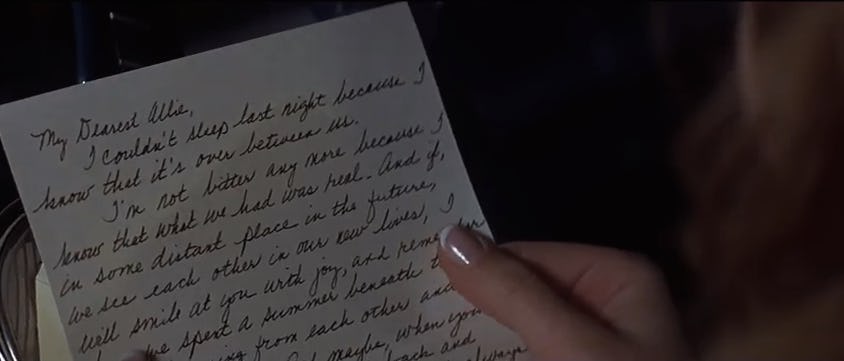 My Dearest Allie,
I couldn't sleep last night because I
know that it's over between us.
I'm not bitter any more because I
know that what we had was real. And if,
in some distant place in the future,
we see each other in our new lives, I
we'll smile at you with joy, and remember
we spent a summer beneath
from each other and
maybe, when you
and
always